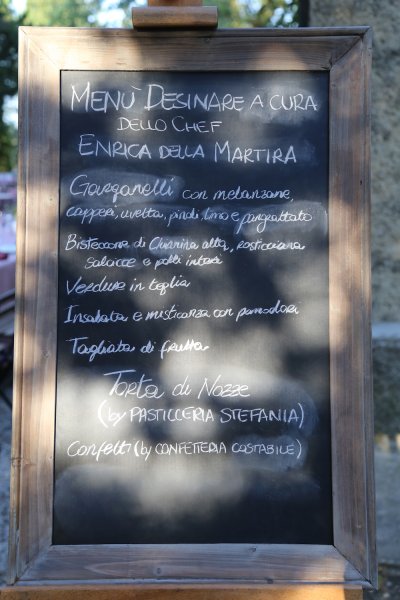 MENÙ DESINARE A CURA
DELLO CHEF
ENRICA DELLA MARTIRA
Garganelli con melanzane,
capperi, uvetta, pinoli, timo e pangrattato
Bisteccone di Chianina alta, rosticciana
salsicce e polli interi
Verdure in teglia
Insalata e misticanza con pomodori
Tagliata di frutta
Torta di Nozze
(by PASTICCERIA STEFANIA)
Confetti (by CONFETTERIA COSTABILE)